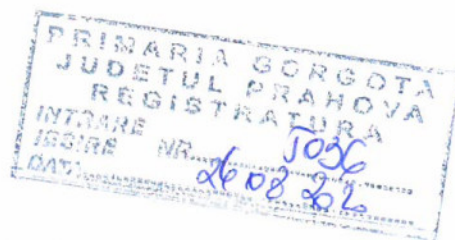 PRIMARIA GORGOTA
JUDETUL PRAHOVA
REGISTRATURA
INTRARE
IESIRE NR. 5036
DATA 26 08 2020